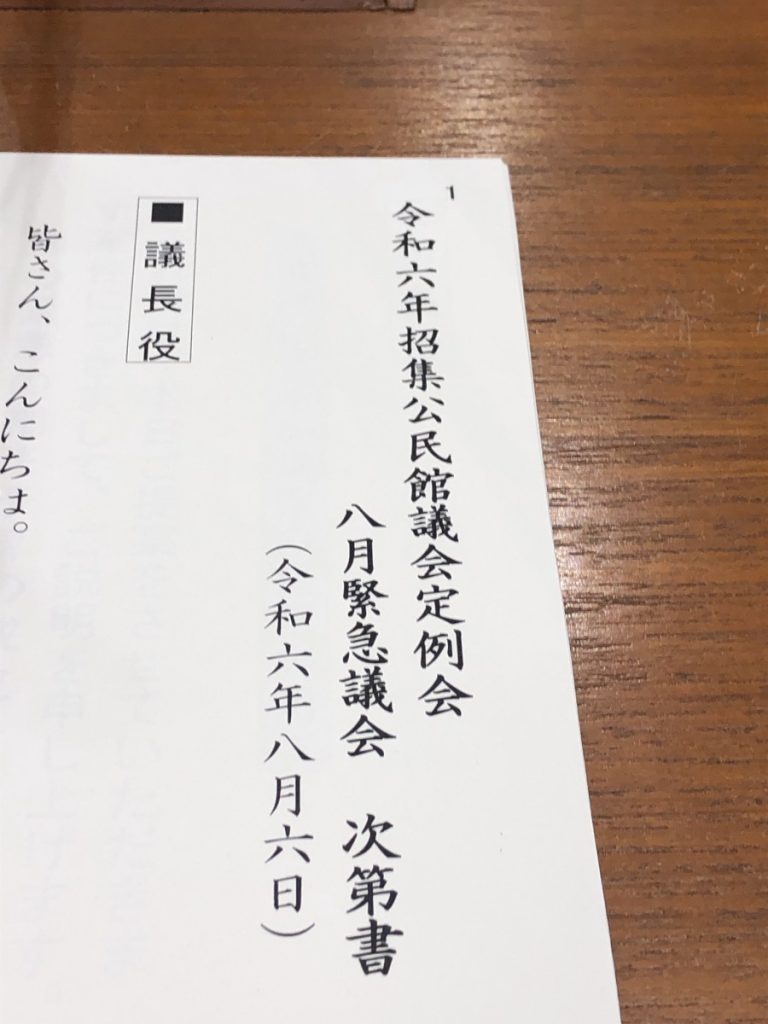 1
令和六年招集公民館議会定例会
八月緊急議会 次第書
（令和六年八月六日）
■議長役
皆さん、こんにちは。